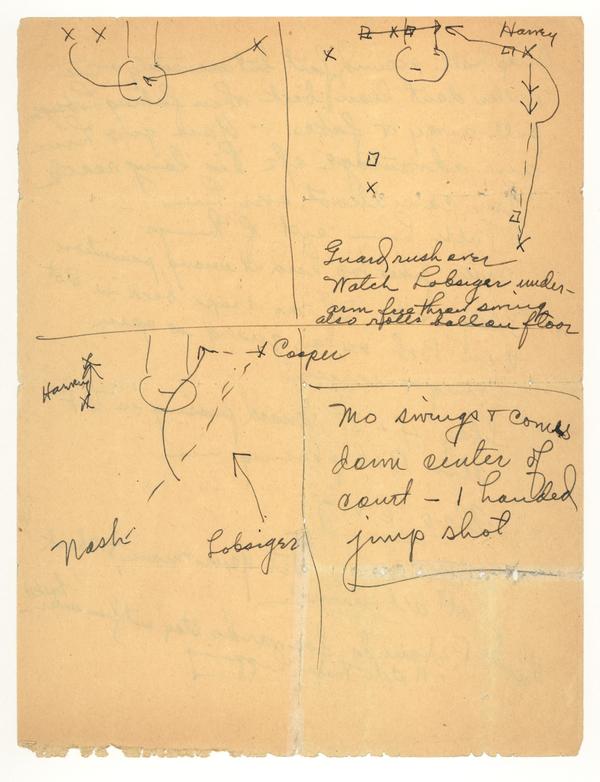 Harvey
Guard rush over
Watch Lobsiger under-
arm free throw swing
also rolls ball on floor
Cooper
Harvey
Nash
Lobsiger
Mo swings & comes
down center of
court - 1 handed
jump shot